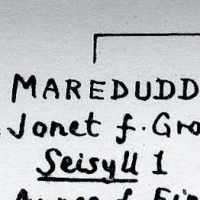 MAREDUDD
Jonet f. Gro
Seisyll 1